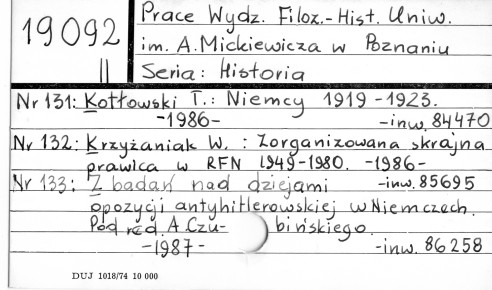 19092
II
Prace Wydz. Filoz.-Hist. Uniw.
im. A. Mickiewicza w Poznaniu
Seria: Historia
Nr 131: Kotłowski T.: Niemcy 1919-1923.
-1986- -inw. 84470
Nr 132: Krzyżaniak W.: Zorganizowana skrajna
prawica w RFN 1949-1980. -1986-
-inw. 85695
Nr 133: Z badań nad dziejami
opozycji antyhitlerowskiej w Niemczech.
Pod red. A. Czubińskiego.
-1987- -inw. 86258
DUJ 1018/74 10 000